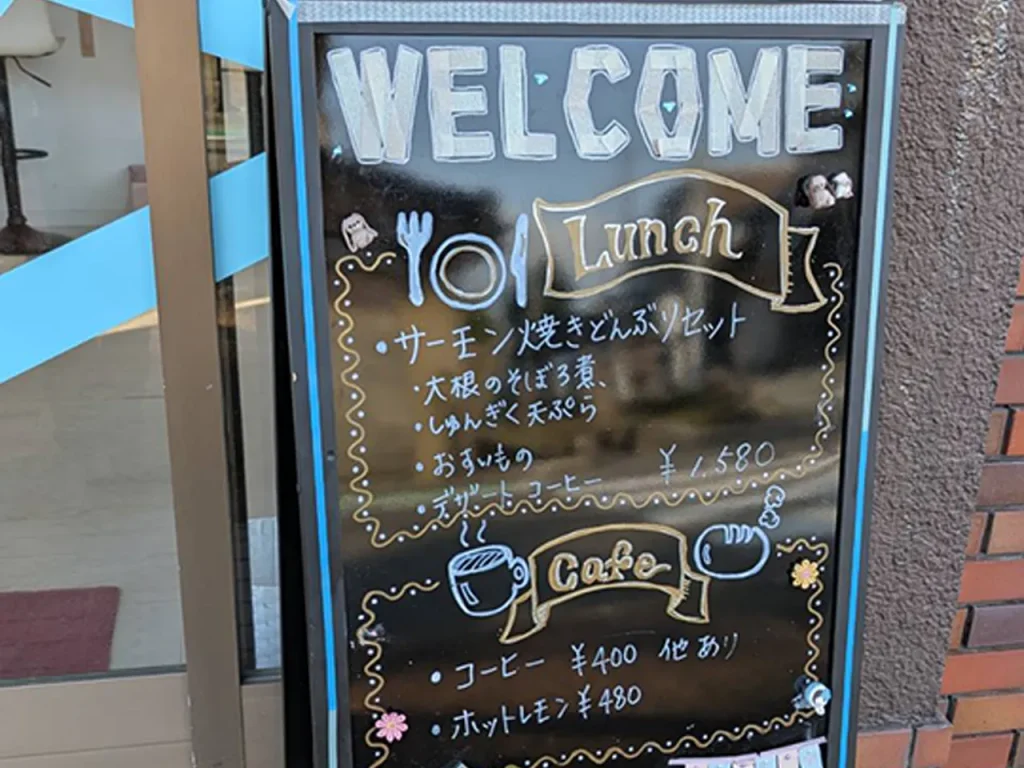 WELCOME
Lunch
・サーモン焼きどんぶりセット
・大根のそぼろ煮、
・しゅんぎく天ぷら
・おすいもの
・デザート コーヒー ¥1,580
Cafe
・コーヒー ¥400 他あり
・ホットレモン ¥480